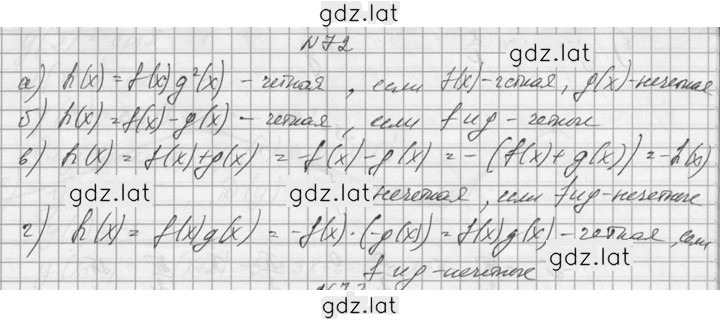 gdz.lat
N72
gdz.lat
а) h(x) = f(x)g²(x) - четная, если f(x)-четная, g(x)-нечетная
б) h(x)=f(x)-g(x) - четная, если f и g - четные
в) h(x) = f(x)+g(x) = -f(x)-g(x) = -(f(x)+g(x)) = -h(x)
gdz.lat gdz.lat
нечетная, если f и g-нечетные
г) h(x) = f(x)g(x) = -f(x)·(-g(x)) = f(x)g(x) - четная, если
f и g-нечетные
gdz.lat gdz.lat
gdz.lat